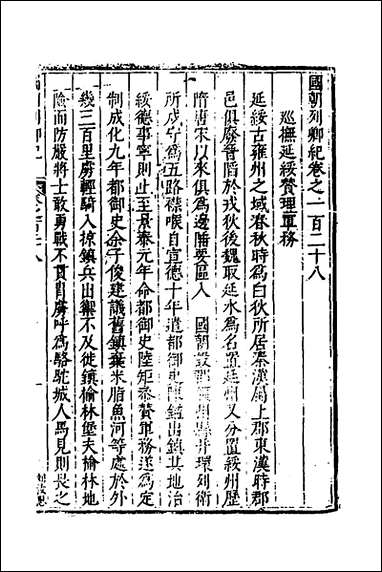 國朝列卿紀卷之一百二十八
巡撫延綏贊理軍務
延綏古雍州之域春秋時為白狄所居秦漢屬上郡東漢時郡
邑俱廢晉陷於戎狄後魏取延水為名置延州又分置綏州歷
隋唐宋以來俱為邊陲要區入 國朝設 環列衛
所戍守為五路襟喉自宣德十年遣都御史陳鎰出鎮其地治
綏德事寧則止至景泰元年命都御史陸矩叅贊軍務遂為定
制成化九年都御史余子俊建議舊鎮棄米脂魚河等處於外
幾三百里虜輕騎入掠鎮兵出禦不及徙鎮榆林堡夫榆林地
險而防嚴將士敢勇戰不貫胄虜呼為駱駝城人馬見則畏之